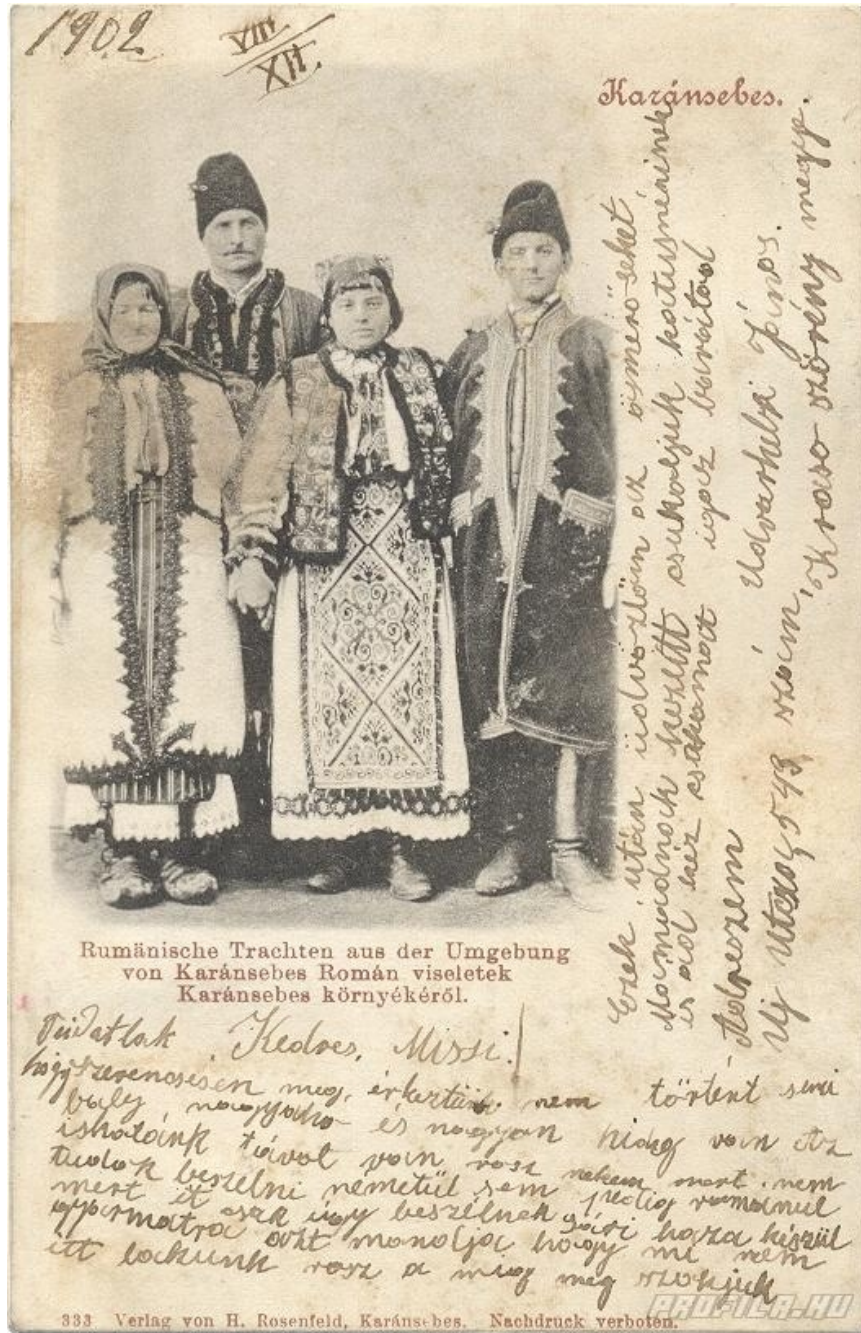 1902
VIII
XII.
Karánsebes.
Rumänische Trachten aus der Umgebung
von Karánsebes Román viseletek
Karánsebes környékéről.
Tudatlak Kedves Missi!
hogy szerencsésen meg érkeztünk nem történt semi
baly és nagyon hideg van Az
iskolánk távol van rosz nekem mert nem
tudok beszelni németül sem pedig románul
mert it csak úgy beszélnek haza készül
azt hogy mi nem
itt lakunk rosz a mig meg szokjuk
Ezek után üdvözlöm az ösmerősöket
Mamádnak kezét csokoljuk
is igaz barátod
Udvarhelyi János.
Adreszem
Uj Utcza 543 szám, Krasso szörény megye.
333 Verlag von H. Rosenfeld, Karánsebes. Nachdruck verboten.
PROFILA.HU